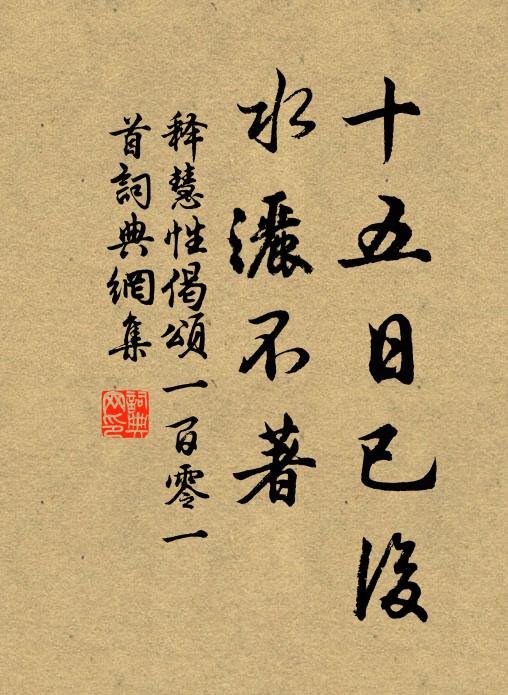 十五日已後
水灑不著
释慧性偈頌一百零一
首詞典網集
詞典网印